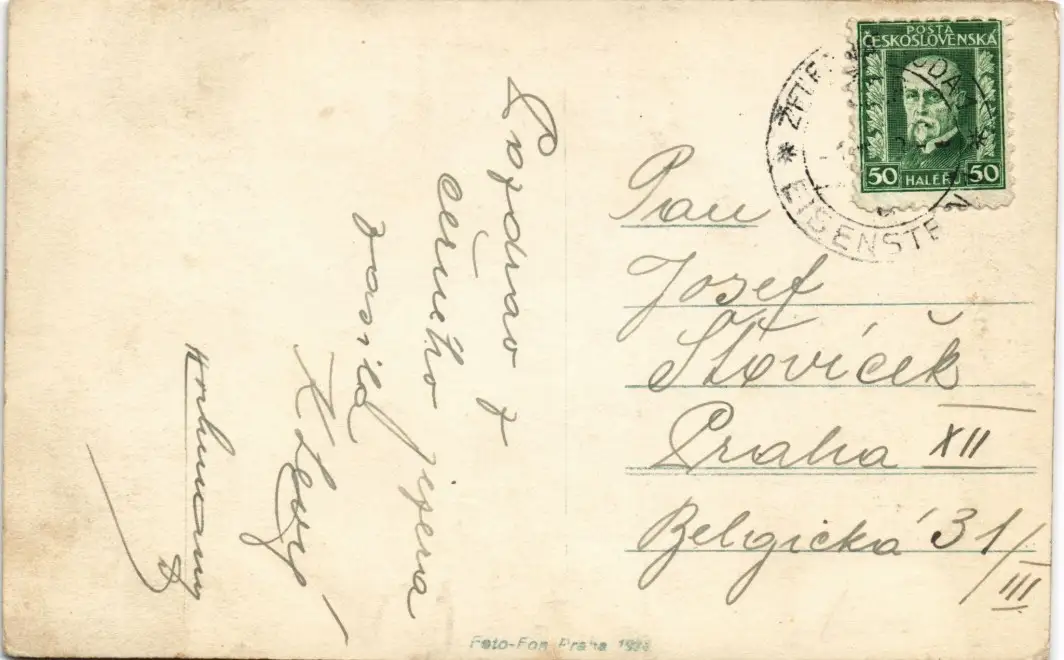 POSTA
ČESKOSLOVENSKA
50 HALÉŘŮ 50
EISENSTEIN
Pozdrav z
černého jezera
zasílá
Pan
Josef
Šťovíček
Praha XII
Belgická 31/III
Foto-Fon Praha